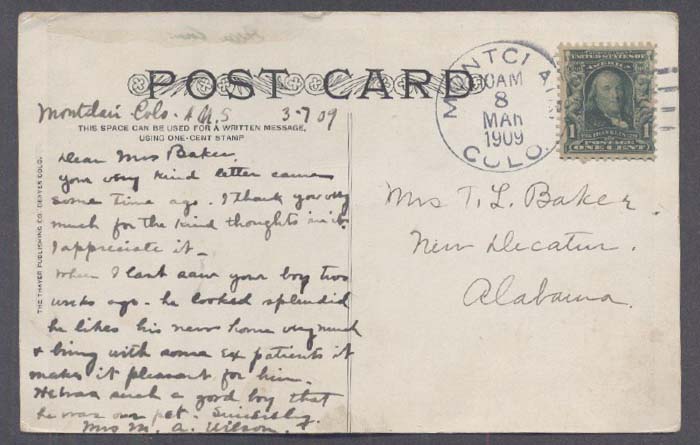 POST CARD
Montclair Colo. 3-7 09
THIS SPACE CAN BE USED FOR A WRITTEN MESSAGE,
USING ONE-CENT STAMP
Dear Mrs Baker,
your very kind letter came
some time ago. I thank you very
much for the kind thoughts in it.
I appreciate it -
When I last saw your boy two
weeks ago - he looked splendid
he likes his new home very much
& being with some Ex patients it
makes it pleasant for him.
He was such a good boy that
he was our pet. Sincerely,
Mrs M. A. Wilson.
THE THAYER PUBLISHING CO. DENVER COLO.
MONTCLA
10 AM
8
MAR
1909
COLO.
UNITED STATES OF
AMERICA
1 FRANKLIN 1
POSTAGE
ONE CENT
Mrs T. L. Baker.
New Decatur.
Alabama.